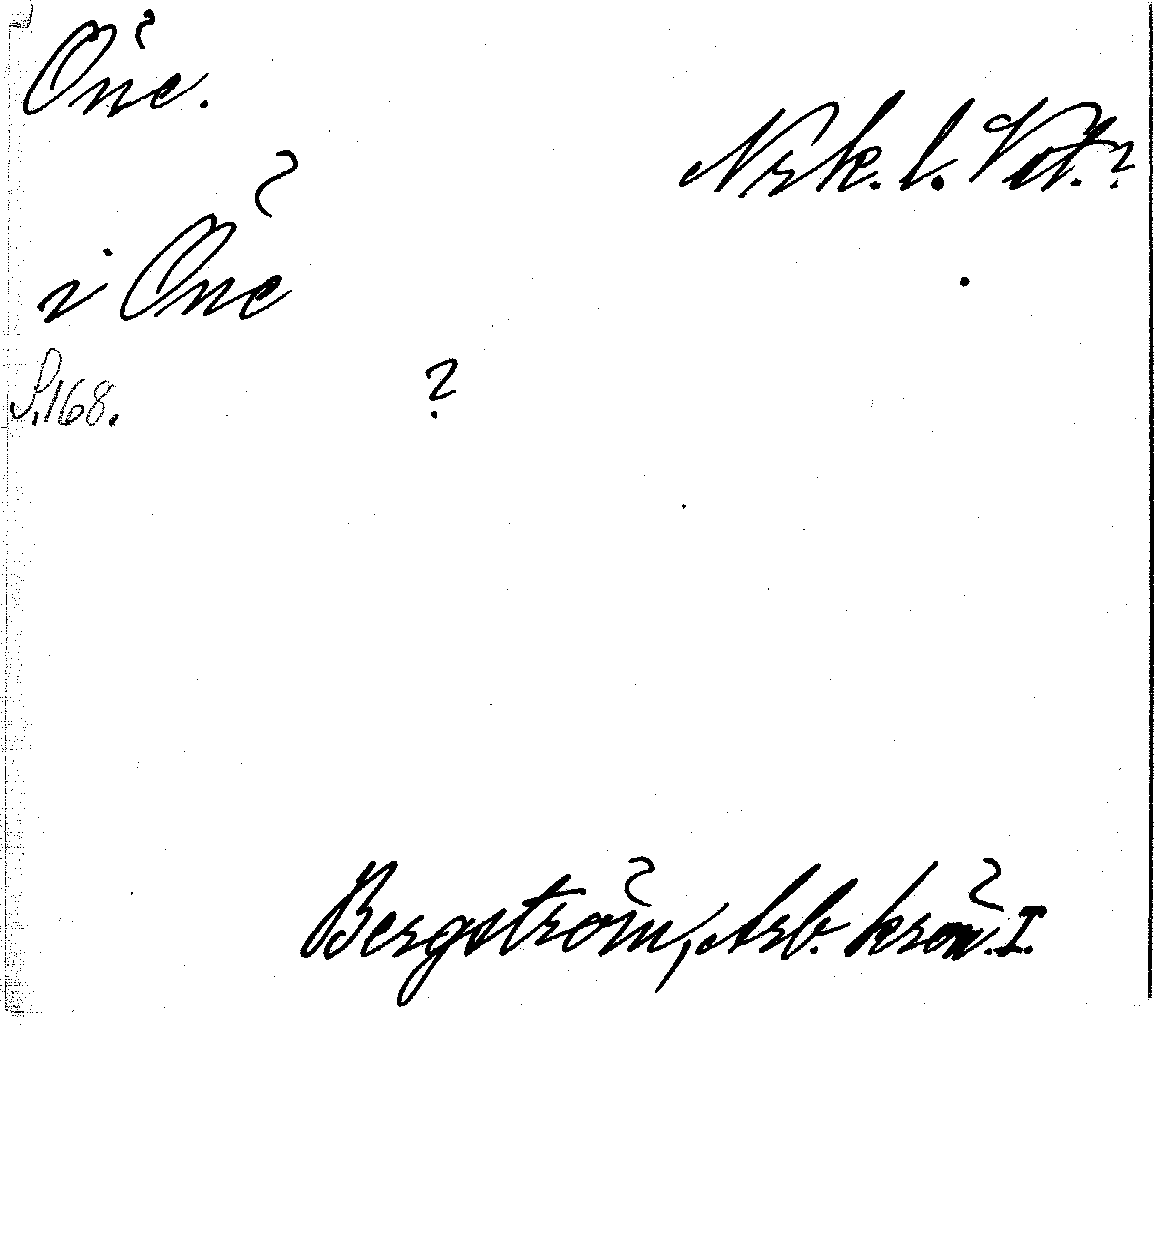 Öne.
Nrk. l. Vstm.?
i Öne
S. 168.
?
Bergström, Arb. krön. I.